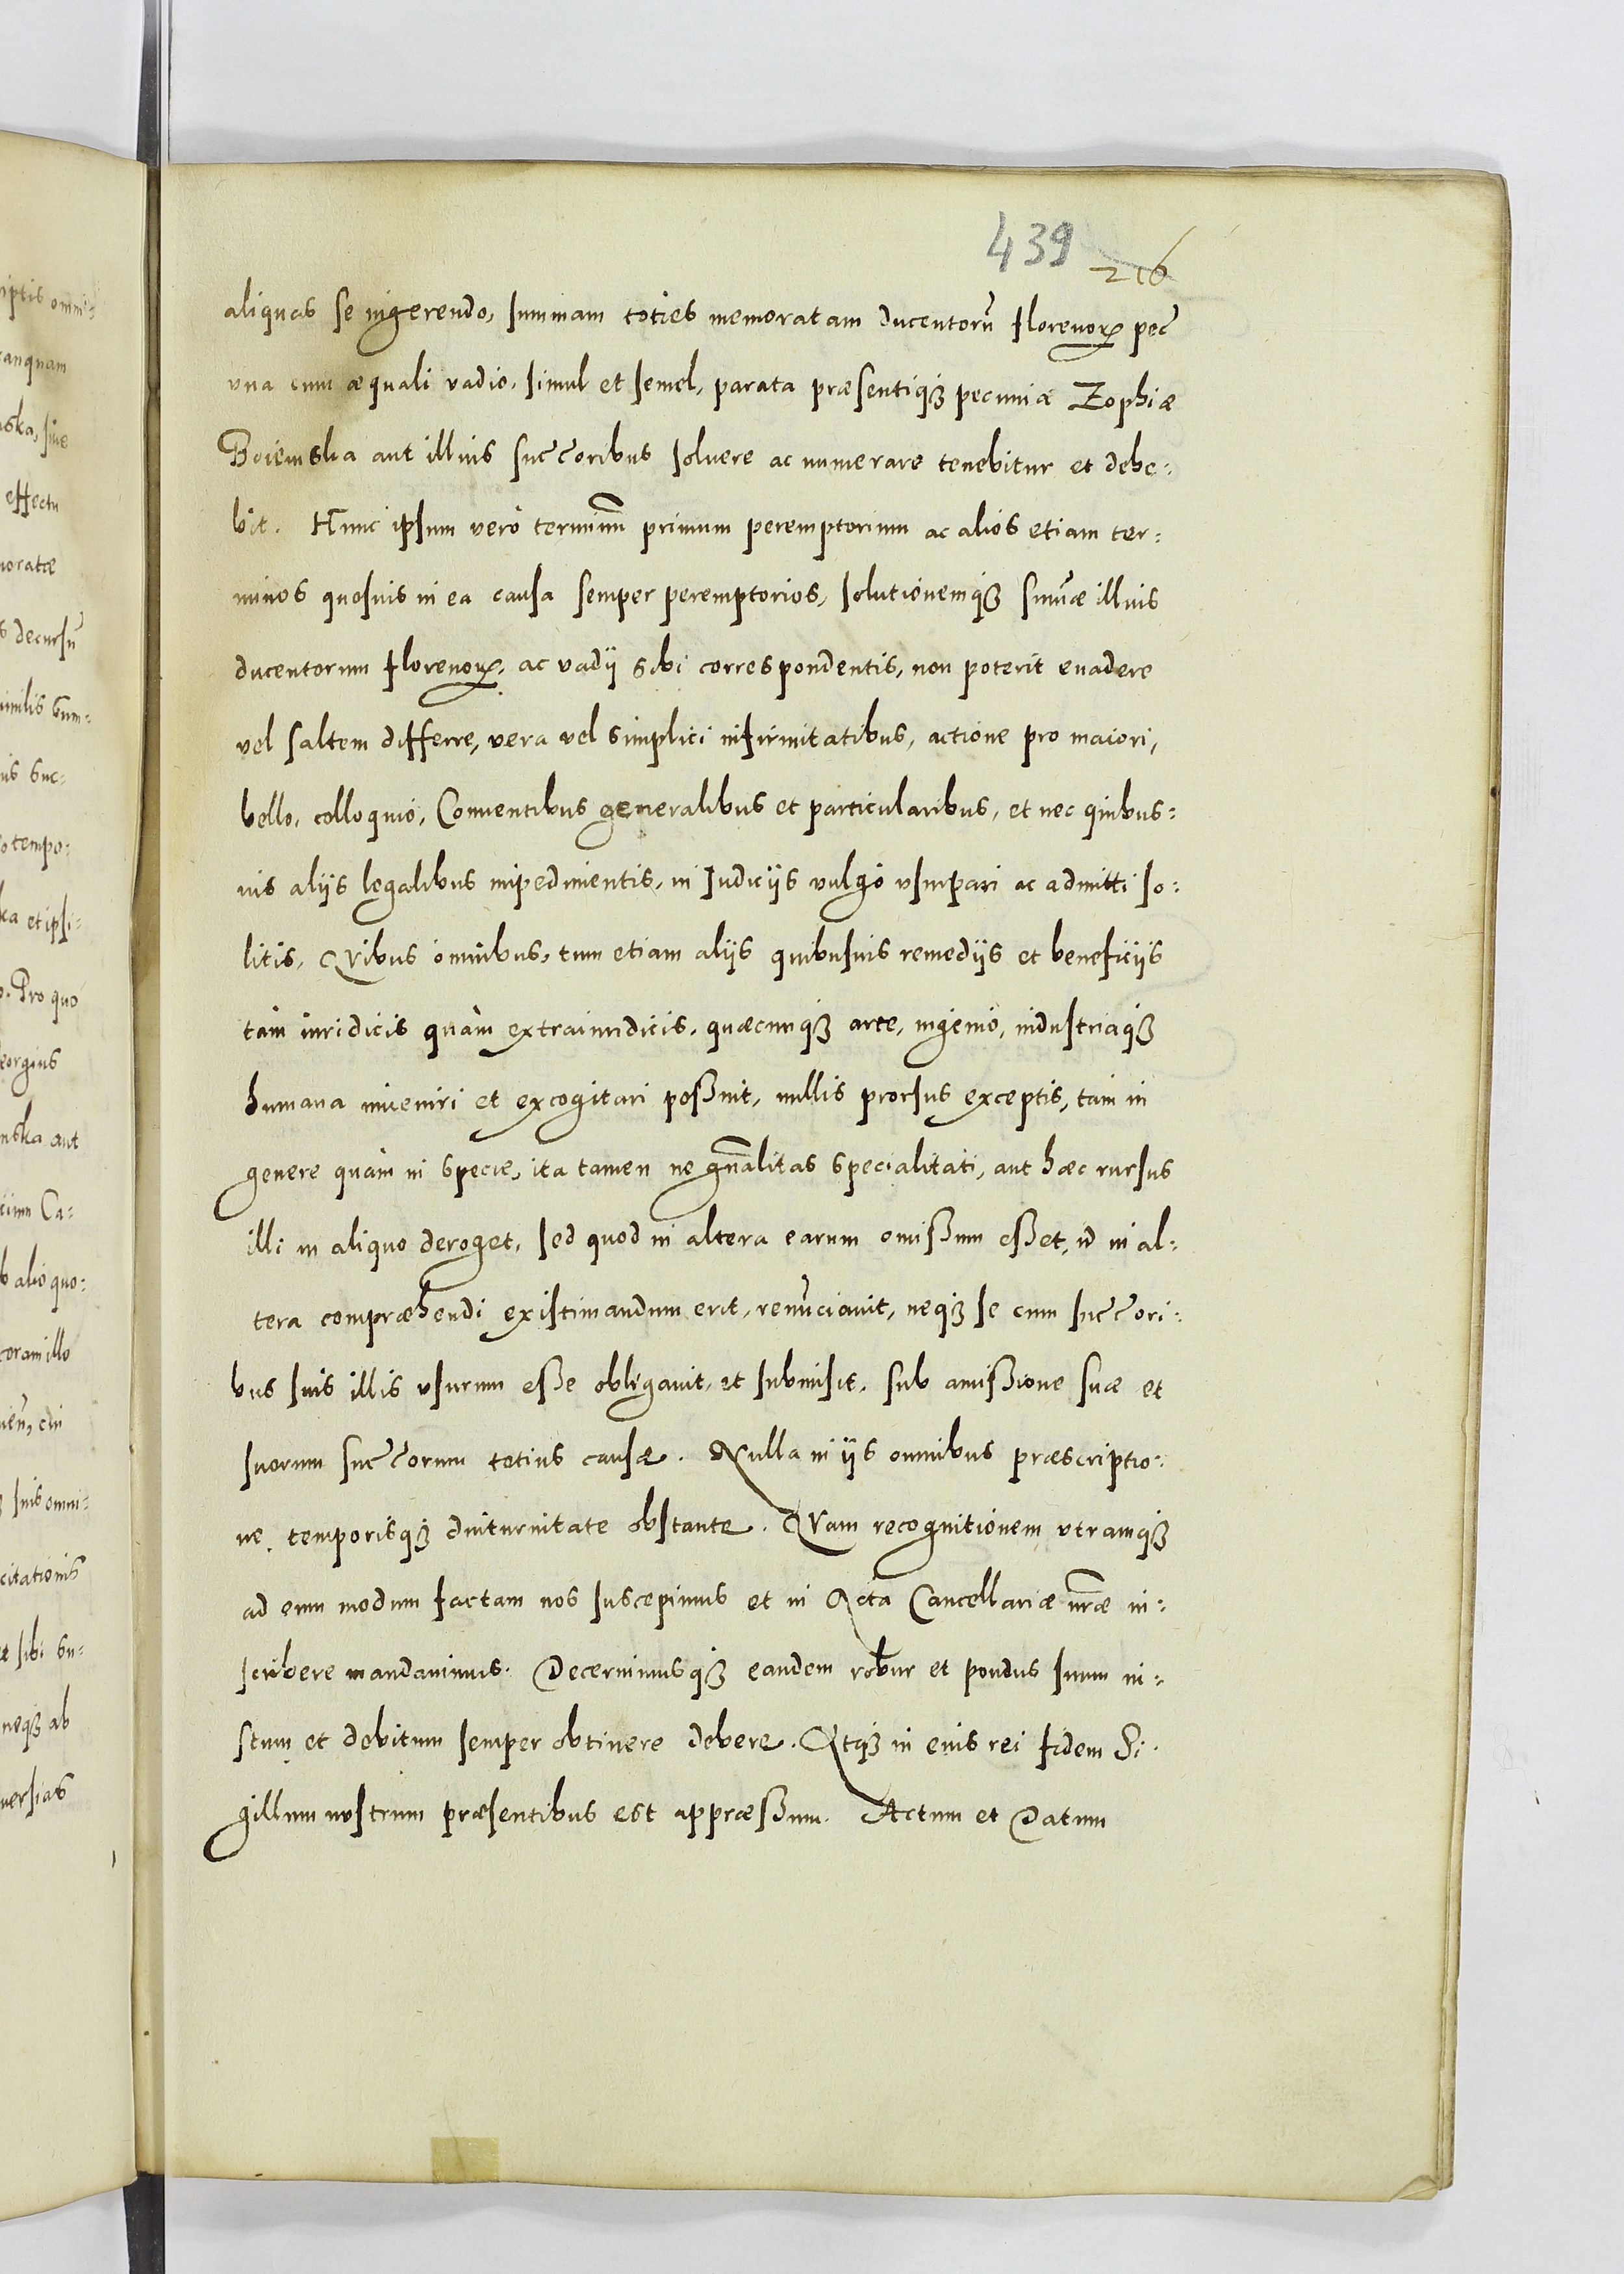 439 216
aliquas se ingerendo, summam toties memoratam ducentorũ florenorꝝ pec̃
vna cum æquali vadio, simul et semel, parata præsentiqꝫ pecunia Zophiæ
Boiemska aut illius succ̃oribus soluere ac numerare tenebitur et debe-
bit. Hunc ipsum verò terminũ primum peremptorium ac alios etiam ter-
minos quosuis in ea causa semper peremptorios, solutionemqꝫ sum̃æ illius
ducentorum florenorꝝ, ac vadij sibi correspondentis, non poterit euadere
vel saltem differre, vera vel simplici infirmitatibus, actione pro maiori,
bello, colloquio, Conuentibus generalibus et particularibus, et nec quibus-
uis alijs legalibus impedimentis, in Iudicijs vulgò vsurpari ac admitti so-
litis, Qvibus omnibus, tum etiam alijs quibusuis remedijs et beneficijs
tàm iuridicis quàm extraiuridicis, quæcunqꝫ arte, ingenio, industriaqꝫ
humana inueniri et excogitari possunt, nullis prorsus exceptis, tàm in
genere quàm in specie, ita tamen ne gñalitas specialitati, aut hæc rursus
illi in aliquo deroget, sed quod in altera earum omissum esset, id in al-
tera compræhendi existimandum erit, renũciauit, neqꝫ se cum succ̃ori-
bus suis illis vsurum esse obligauit, et submisit, sub amissione suæ et
suorum succ̃orum totius causæ. Nulla in ijs omnibus præscriptio-
ne, temporisqꝫ diuturnitate obstante. QVam recognitionem vtramqꝫ
ad eum modum factam nos suscepimus et in Acta Cancellariæ nr̃æ in-
scribere mandauimus. Decernimusqꝫ eandem robur et pondus suum iu-
stum et debitum semper obtinere debere. Atqꝫ in eius rei fidem Si-
gillum nostrum præsentibus est appræssum. Actum et Datum